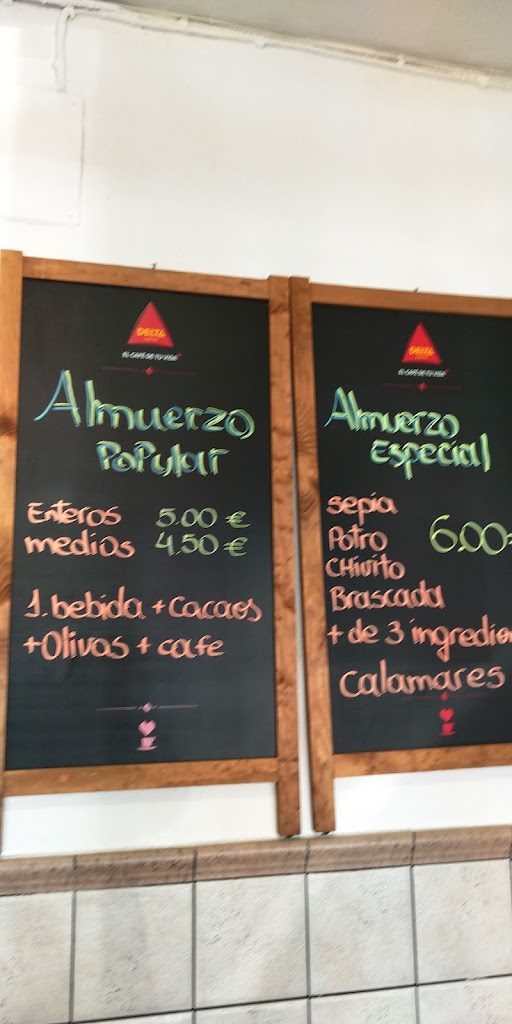 DELTA
EL CAFÉ DE TU VIDA
Almuerzo
Popular
Enteros 5.00 €
medios 4.50 €
1. bebida + Cacaos
+ Olivas + cafe
DELTA
EL CAFÉ DE TU VIDA
Almuerzo
Especial
sepia
Potro 6.00
CHivito
Brascada
+ de 3 ingredien
Calamares